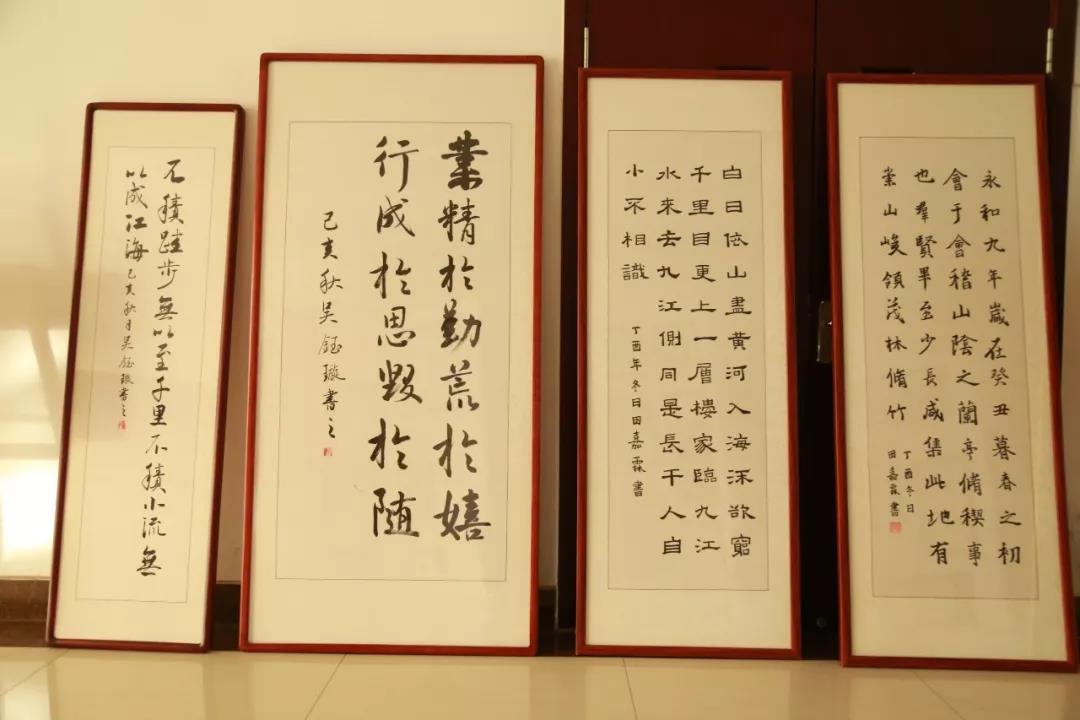 不積跬步無以至千里不積小流無
以成江海己亥秋月吴鈺璇書之
業精於勤荒於嬉
行成於思毀於随
己亥秋吴鈺璇書之
白日依山盡黄河入海深欲窮
千里目更上一層樓家臨九江
水來去九江側同是長干人自
小不相識
丁酉年冬日田嘉霖書
永和九年歲在癸丑暮春之初
會于會稽山陰之蘭亭脩稧事
也羣賢畢至少長咸集此地有
崇山峻領茂林脩竹
丁酉冬日
田嘉霖書